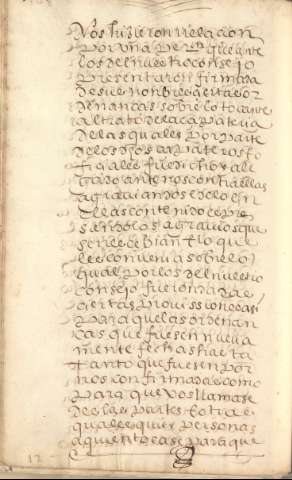 Nos hizieron rrelaçion
por una peti^on que ante
los del nuestro consejo
presentaron firmada
de su nonbre çiertas or
denanças sobre lo tocante
al trato de la çapateria
de las quales por parte
de los d[ic]hos çapateros fo
fue dicho y ale
gado ante nos contra ellas
agraviandose de lo en
ellas contenido espre
sando los agravios que
se rreçebian y lo que
conuenia sobre lo
qual por los del nuestro
consejo fueron dadas
çiertas prouissiones
para que las ordenan
ças que fuesen nueva
mente fechas hasta
tanto que fuesen por
nos confirmadas como
para que vos llamase
des las partes e otras
quales quier personas
a quien tocase para que
12